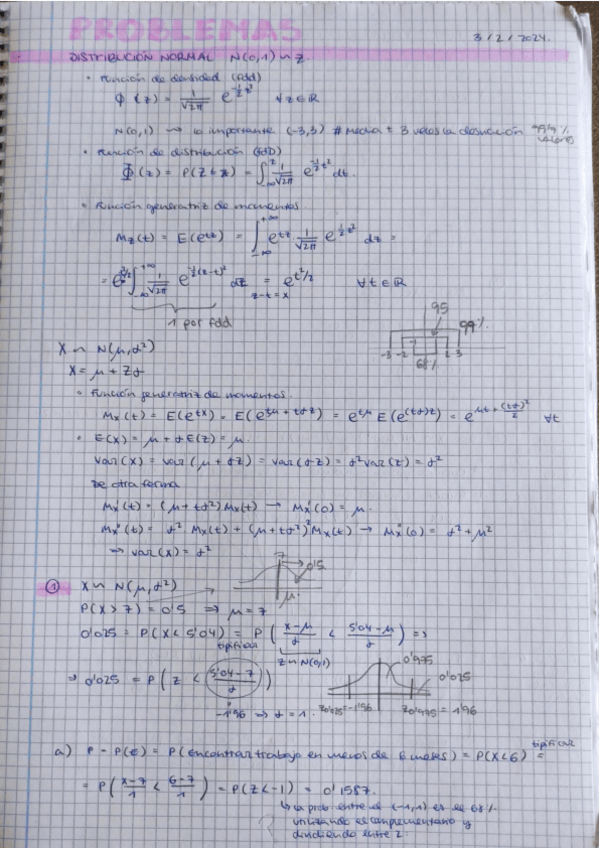 PROBLEMAS
3/2/2024.
DISTRIBUCIÓN NORMAL N(0,1) ~ Z.
• Función de densidad (fdd)
ϕ(z) = 1/√2π e^(-½z²) ∀z∈ℝ
N(0,1) ⟿ lo importante (-3,3) # media ± 3 veces la desviación 99'4% valores
• Función de distribución (fdD)
Φ(z) = P(Z≤z) = ∫_{-∞}^{z} 1/√2π e^(-½t²) dt.
• Función generatriz de momentos
M_Z(t) = E(e^{tZ}) = ∫_{-∞}^{+∞} e^{tz} 1/√2π e^(-½z²) dz =
= e^{t²/2} ∫_{-∞}^{+∞} 1/√2π e^(-½(z-t)²) dz = e^{t²/2} ∀t∈ℝ
z-t=x
1 por fdd
95
99%
-3 -2 -1 1 2 3
68%
X ~ N(μ,σ²)
X = μ + Zσ
• Función generatriz de momentos.
M_X(t) = E(e^{tX}) = E(e^{tμ + tσZ}) = e^{tμ} E(e^{(tσ)Z}) = e^{μt + (tσ)²/2} ∀t
• E(X) = μ + σE(Z) = μ.
Var(X) = Var(μ + σZ) = Var(σZ) = σ²Var(Z) = σ²
De otra forma
M_X'(t) = (μ + tσ²)M_X(t) → M_X'(0) = μ.
M_X''(t) = σ² M_X(t) + (μ + tσ²)² M_X(t) → M_X''(0) = σ² + μ²
⇒ Var(X) = σ²
7 → 0'5
μ
① X ~ N(μ,σ²)
P(X > 7) = 0'5 ⇒ μ = 7
0'025 = P(X < 5'04) = P( (X-μ)/σ < (5'04-μ)/σ ) ⇒
tipificar
Z ~ N(0,1)
⇒ 0'025 = P( Z < (5'04-7)/σ )
-1'96 ⇒ σ = 1.
0'975
0'025
Z0'025=-1'96 Z0'975 = 1'96
a) P = P(E) = P(encontrar trabajo en menos de 6 meses) = P(X<6) =
tipificar
= P( (X-7)/1 < (6-7)/1 ) = P(Z<-1) = 0'1587.
↳ la prob entre el (-1,1) es el 68%
utilizando el complementario y
dividiendo entre 2.